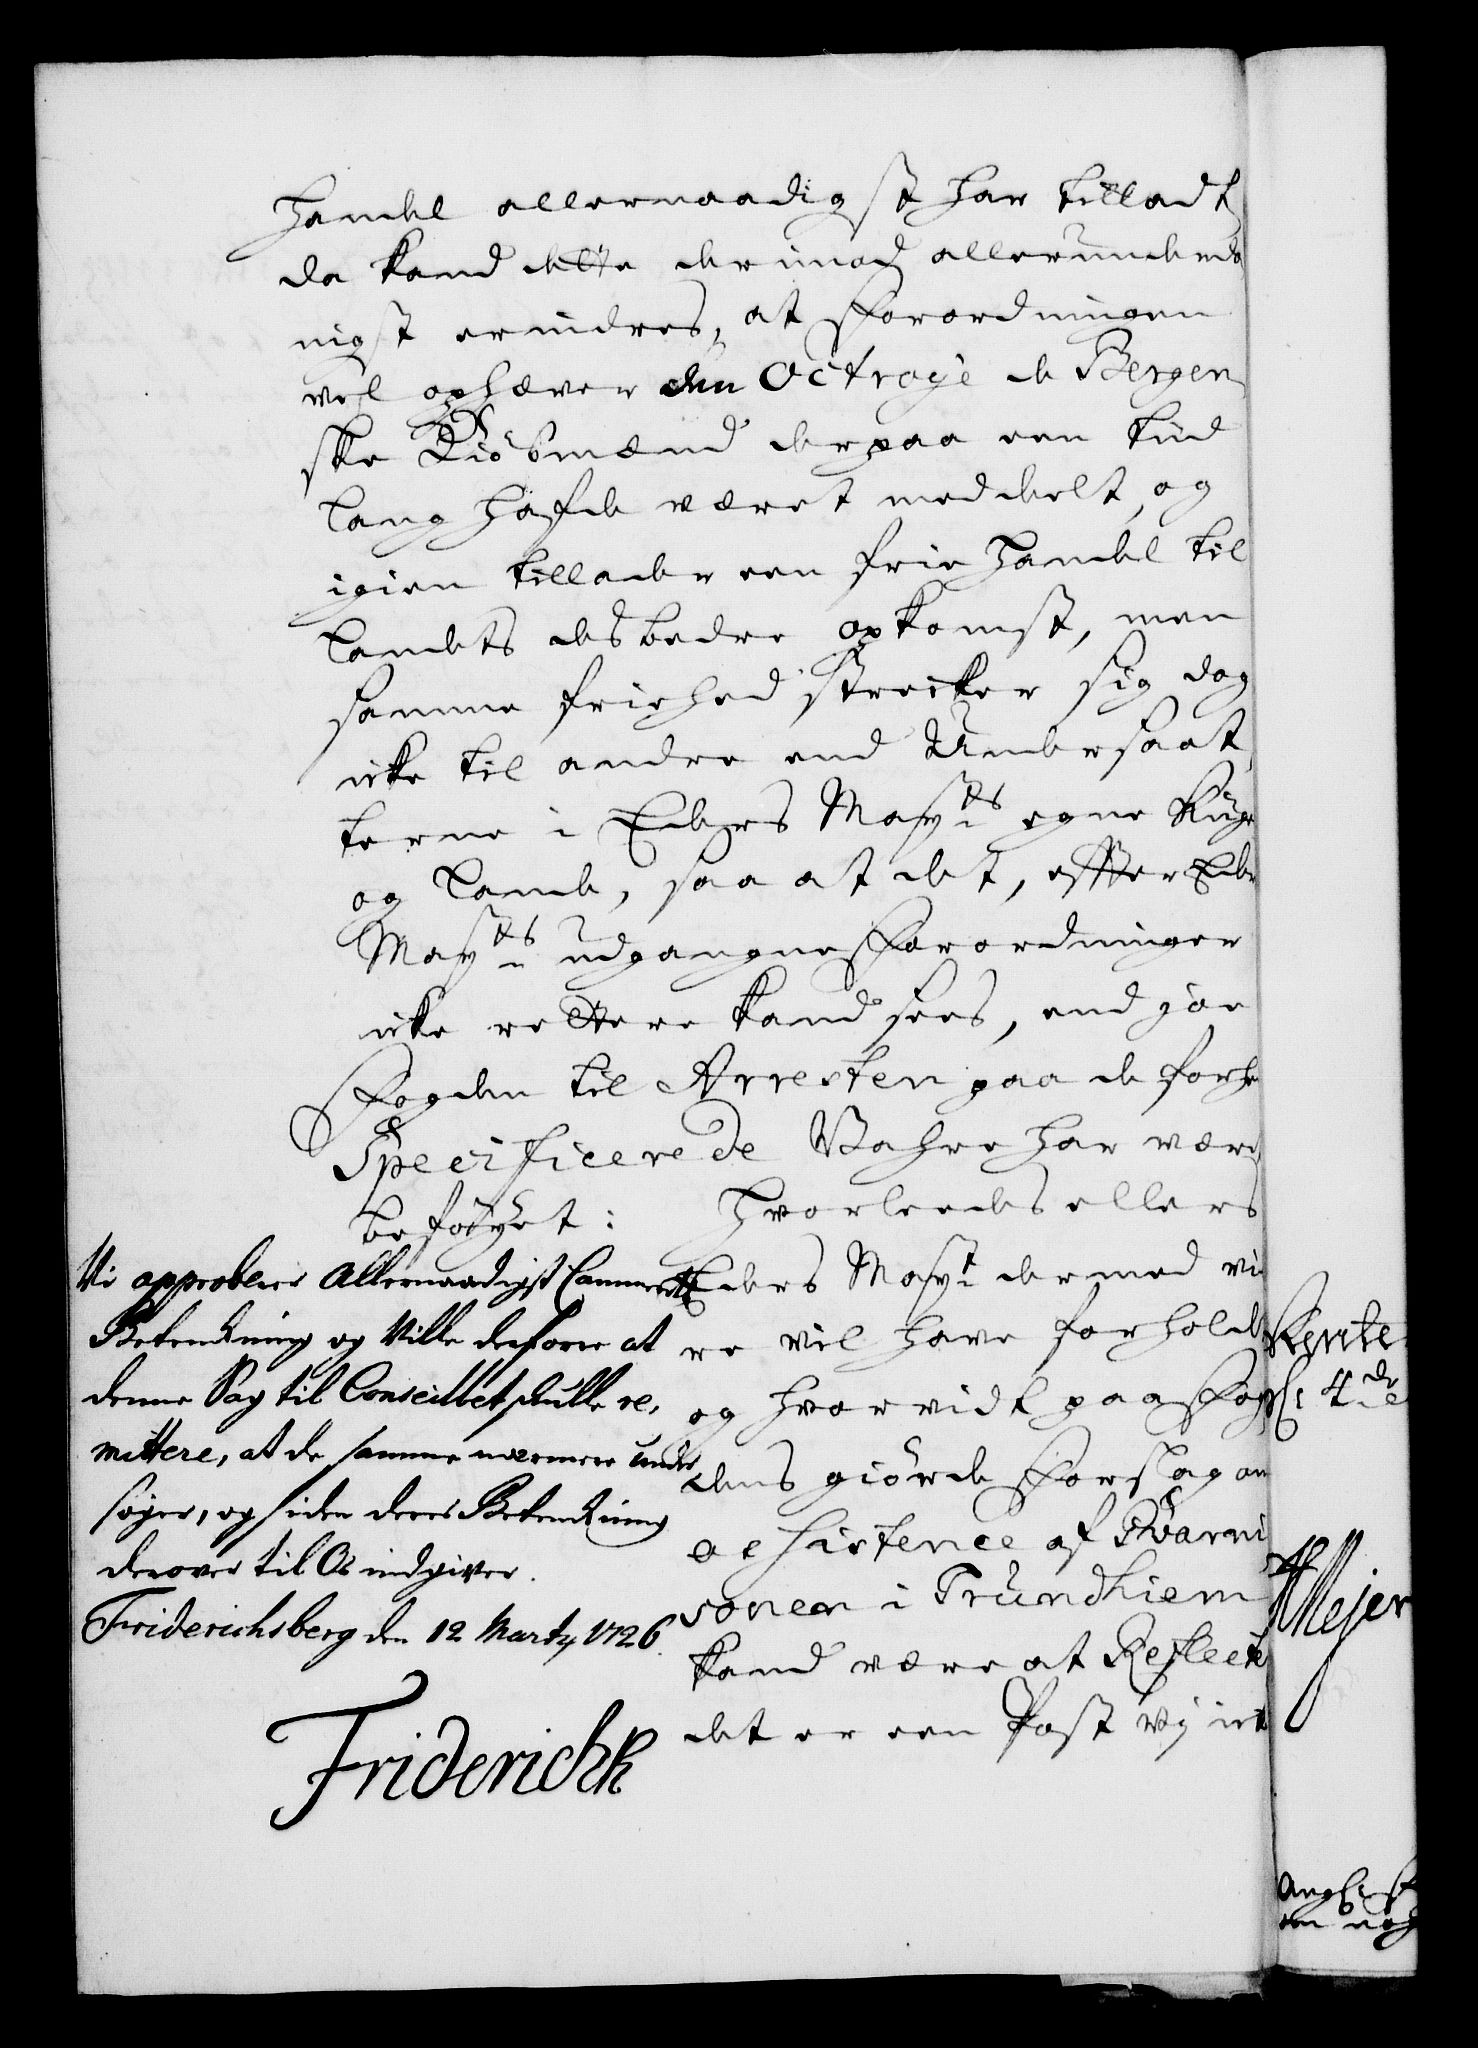 Handel allernaadigst har tilladt
da kand dette derimod allerunderda
nigst erindres, at Forordningen
vel ophæver den Octroye de Bergen
ske Kiøbmænd derpaa een tiid
lang hafde været meddelt, og
igien tillader een frie Handel til
Landets des bedre opkomst, men
samme friehed strecker sig dog
icke til andre end Undersaat
terne i Eders Mayts egne Riiger
og Lande, saa at det, effter Eders
Mayts udgangne Forordninger
icke rettere kand sees, end jo
Fogden til Arresten paa de forhen
Specificerede Vahre har været
beføyet: Hvorleedes ellers
Eders Mayt dermed vi
re vil have forholdt
og hvorvidt paa Fog
dens giørde Forslag om
Assistence af Gvarni
sonen i Trundhiem
kand være at Reflecte
det er een Post vij icke
Vi approberer Allernaadigst Cammerets
Betenckning og Ville derforre at
denne Sag til Conseillet skulle re,
mittere, at de samme nærmere under
søger, og siden deres Betenckning
derover til Os indgiver.
Friderichsberg den 12 Marty 1726.
Friderich R
Rente
4de
Meyer